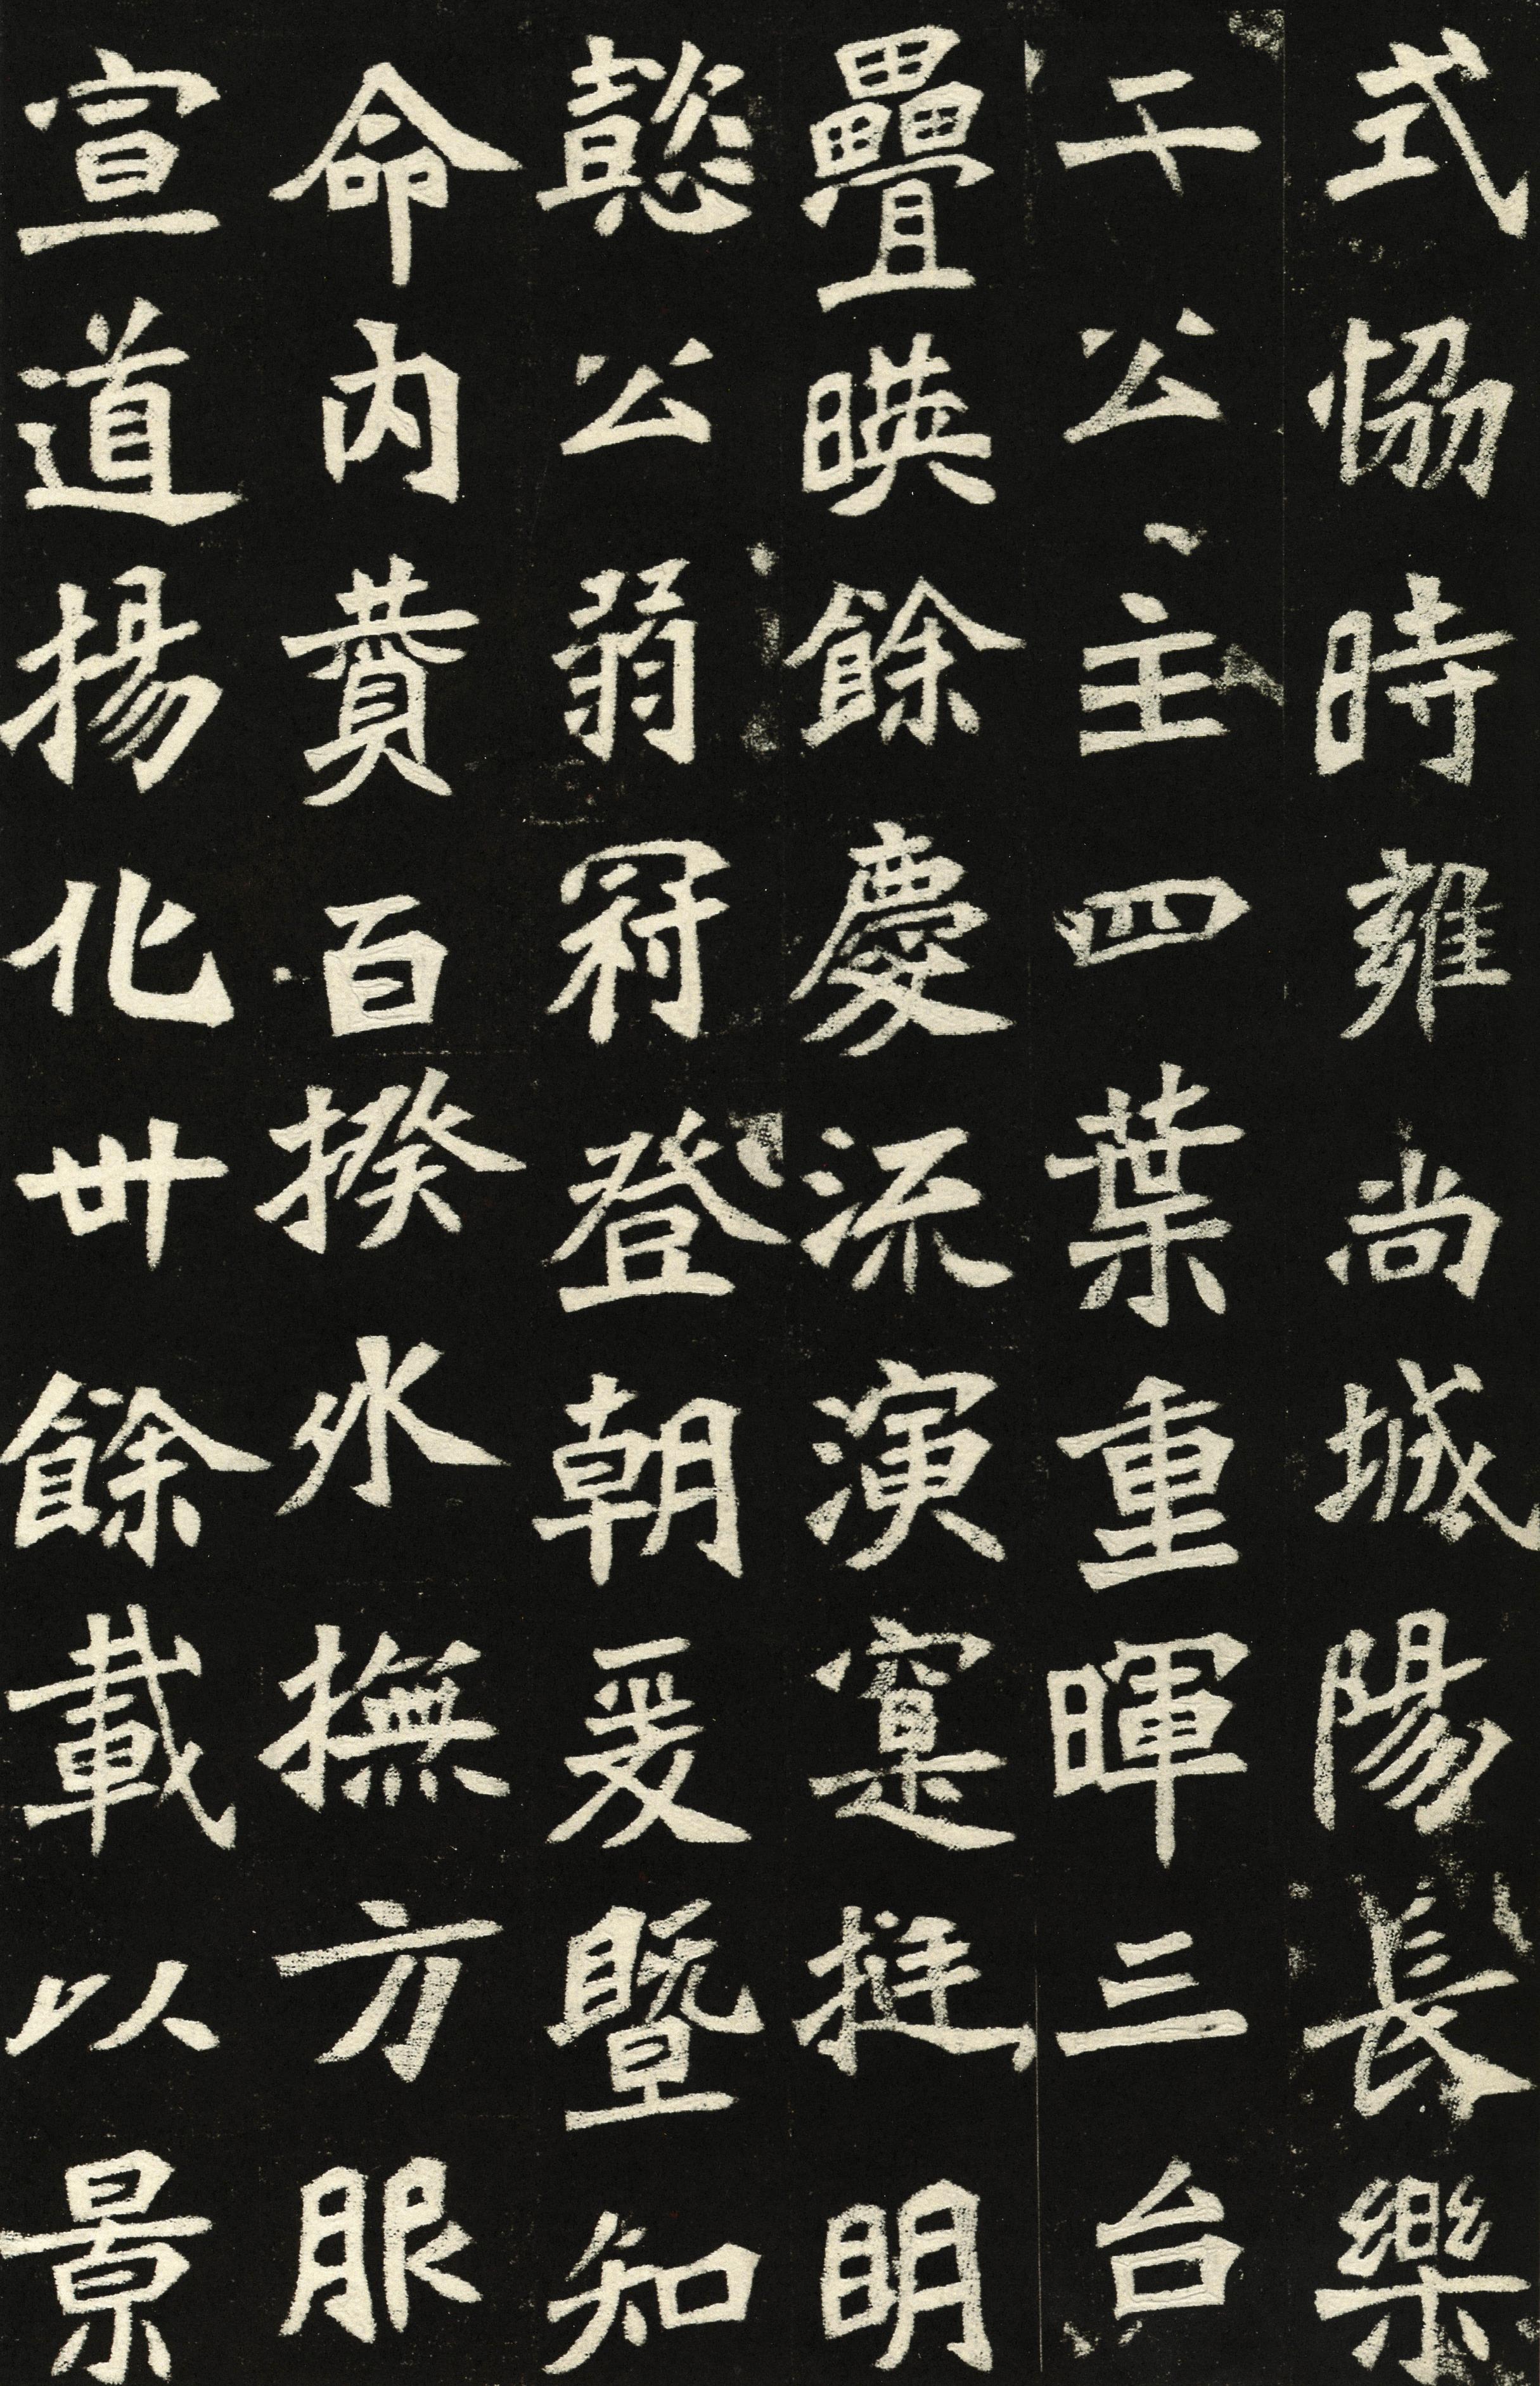 式恊時雍尚城陽長樂
千公主四葉重暉三台
疊暎餘慶流演寔挺明
懿公弱冠登朝爰暨知
命內賛百揆外撫方服
宣道揚化卅餘載以景